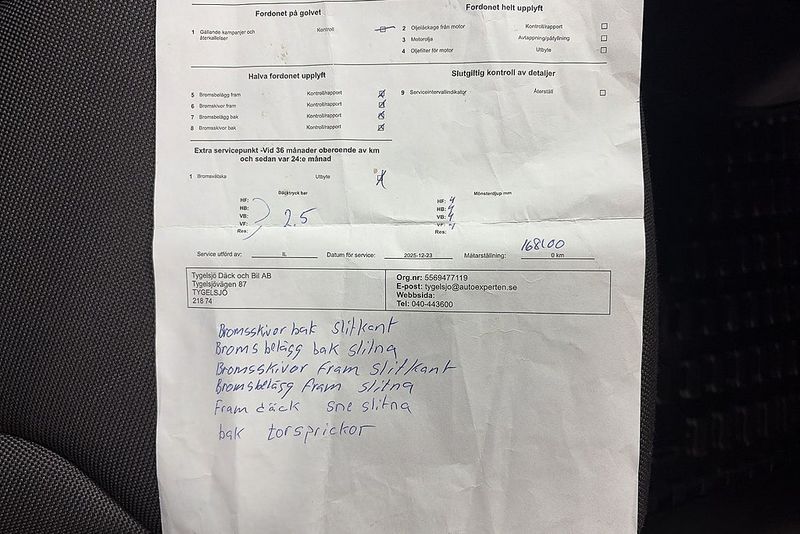 Fordonet på golvet
1 Gällande kampanjer och återkallelser Kontroll
Fordonet helt upplyft
2 Oljeläckage från motor Kontroll/rapport
3 Motorolja Avtappning/påfyllning
4 Oljefilter för motor Utbyte
Halva fordonet upplyft
5 Bromsbelägg fram Kontroll/rapport
6 Bromsskivor fram Kontroll/rapport
7 Bromsbelägg bak Kontroll/rapport
8 Bromsskivor bak Kontroll/rapport
Slutgiltig kontroll av detaljer
9 Serviceintervallindikator Återställ
Extra servicepunkt -Vid 36 månader oberoende av km
och sedan var 24:e månad
1 Bromsvätska Utbyte
Däcktryck bar
HF:
HB:
VB:
VF:
Res:
2.5
Mönsterdjup mm
HF: 4
HB: 4
VB: 4
VF: 4
Res:
Service utförd av: IL Datum för service: 2025-12-23 Mätarställning: 0 km
Tygelsjö Däck och Bil AB
Tygelsjövägen 87
TYGELSJÖ
218 74
Org.nr: 5569477119
E-post: tygelsjo@autoexperten.se
Webbsida:
Tel: 040-443600
Bromsskivor bak slitkant
Bromsbelägg bak slitna
Bromsskivor fram slitkant
Bromsbelägg fram slitna
Fram däck sne slitna
bak torsprickor